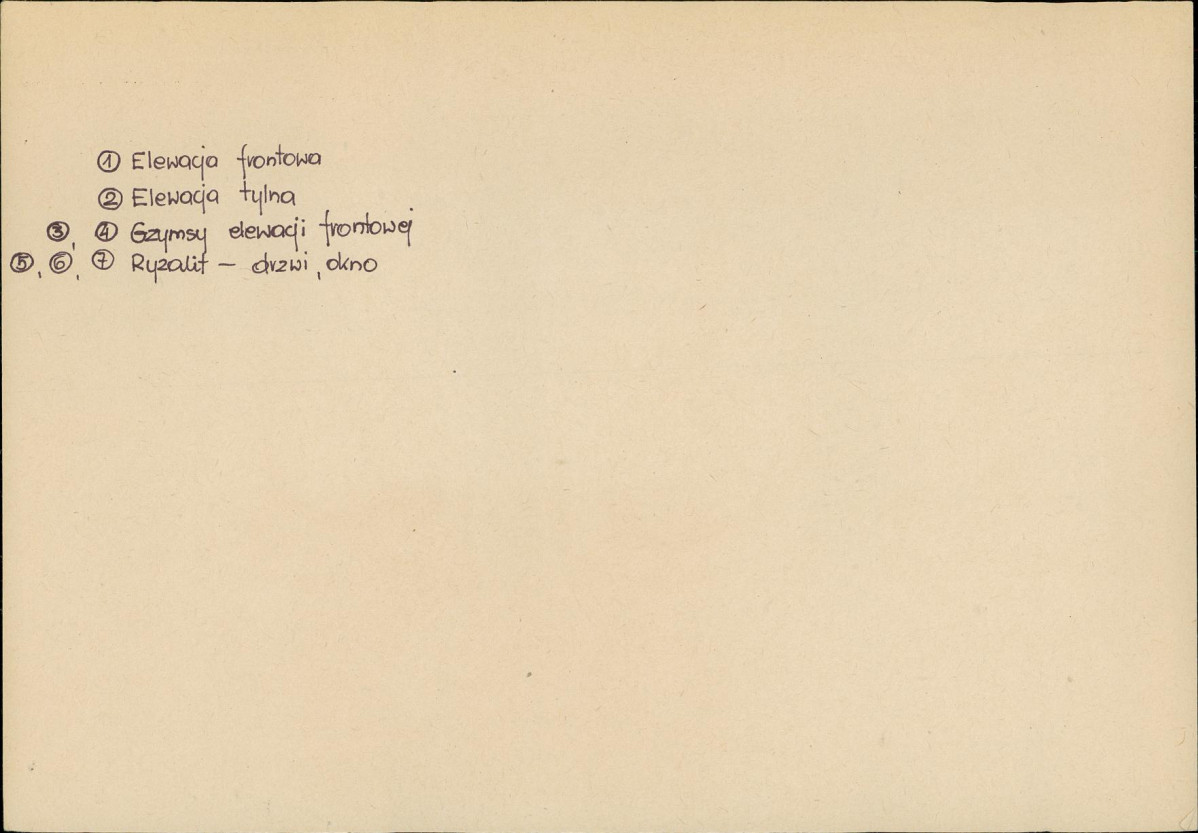 ① Elewacja frontowa
② Elewacja tylna
③, ④ Gzymsy elewacji frontowej
⑤, ⑥, ⑦ Ryzalit – drzwi, okno